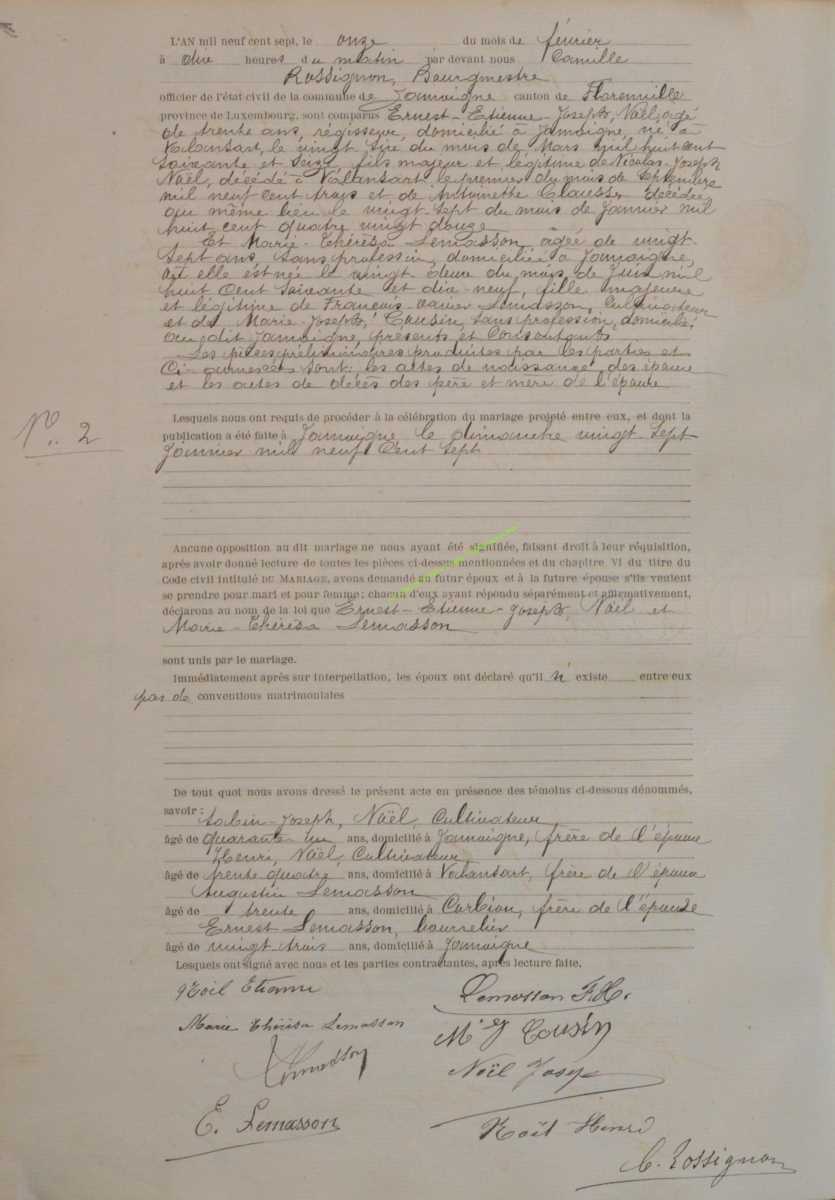 L'AN mil neuf cent sept, le onze du mois de février
à dix heures du matin par devant nous Camille
Rossignon, Bourgmestre
officier de l'état civil de la commune de Jamoigne canton de Florenville
province de Luxembourg, sont comparus Ernest-Etienne-Joseph, Noël, agé
de trente ans, régisseur, domicilié à Jamoigne, né à
Valansart, le vingt six du mois de Mars mil huit cent
soixante et seize, fils majeur et légitime de Nicolas-Joseph
Noël, décédé à Valansart le premier du mois de septembre
mil neuf cent trois et de Antoinette Clausse décédée
au même lieu le vingt-sept du mois de Janvier mil
huit cent quatre vingt douze
Et Marie-Thérèsa Lemasson, agée de vingt-
sept ans, sans profession, domiciliée à Jamoigne,
où elle est née le vingt deux du mois de Juin mil
huit cent soixante et dix-neuf, fille majeure
et légitime de François-Xavier Lemasson, Cultivateur
et de Marie-Joseph, Cousin, sans profession, domiciliés
au dit Jamoigne, présents et consentants
Les pièces préliminaires produites par les parties et
Ci-annexées sont: les actes de naissance des époux
et les actes de décès des père et mère de l'époux
N°. 2
Lesquels nous ont requis de procéder à la célébration du mariage projeté entre eux, et dont la
publication a été faite à Jamoigne le dimanche vingt sept
Janvier mil neuf Cent Sept
Aucune opposition au dit mariage ne nous ayant été signifiée, faisant droit à leur réquisition,
après avoir donné lecture de toutes les pièces ci-dessus mentionnées et du chapitre VI du titre du
Code civil intitulé DU MARIAGE, avons demandé au futur époux et à la future épouse s'ils veulent
se prendre pour mari et pour femme; chacun d'eux ayant répondu séparément et affirmativement,
déclarons au nom de la loi que Ernest-Etienne-Joseph, Noël et
Marie-Thérèsa Lemasson
sont unis par le mariage.
Immédiatement après sur interpellation, les époux ont déclaré qu'il n' existe entre eux
pas de conventions matrimoniales
De tout quoi nous avons dressé le présent acte en présence des témoins ci-dessous dénommés,
savoir : Joseph, Noël, Cultivateur,
âgé de quarante un ans, domicilié à Jamoigne, frère de l'époux
Henri, Noël, Cultivateur,
âgé de trente quatre ans, domicilié à Valansart, frère de l'époux
Augustin Lemasson
âgé de trente ans, domicilié à Corbion, frère de l'épouse
Ernest Lemasson, bourrelier
âgé de vingt trois ans, domicilié à Jamoigne
Lesquels ont signé avec nous et les parties contractantes, après lecture faite.
Noël Etienne Lemasson F.X.
Marie Thérèsa Lemasson M.ie J Cousin
Lemasson Noël Josep
E. Lemasson Noël Henri
C. Rossignon